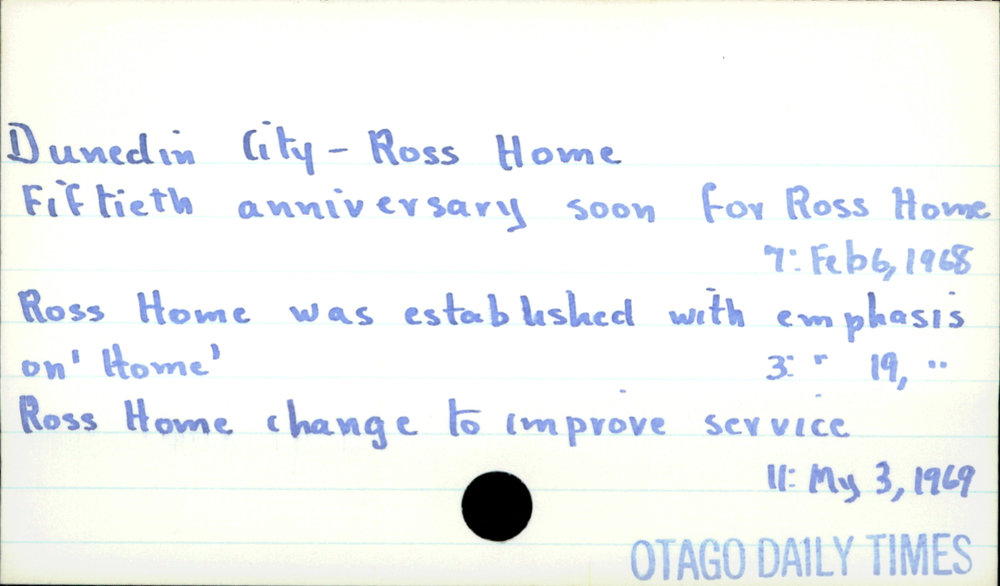 Dunedin City - Ross Home
Fiftieth anniversary soon for Ross Home
7: Feb 6, 1968
Ross Home was established with emphasis
on 'Home' 3: " 19, "
Ross Home change to improve service
11: My 3, 1969
OTAGO DAILY TIMES